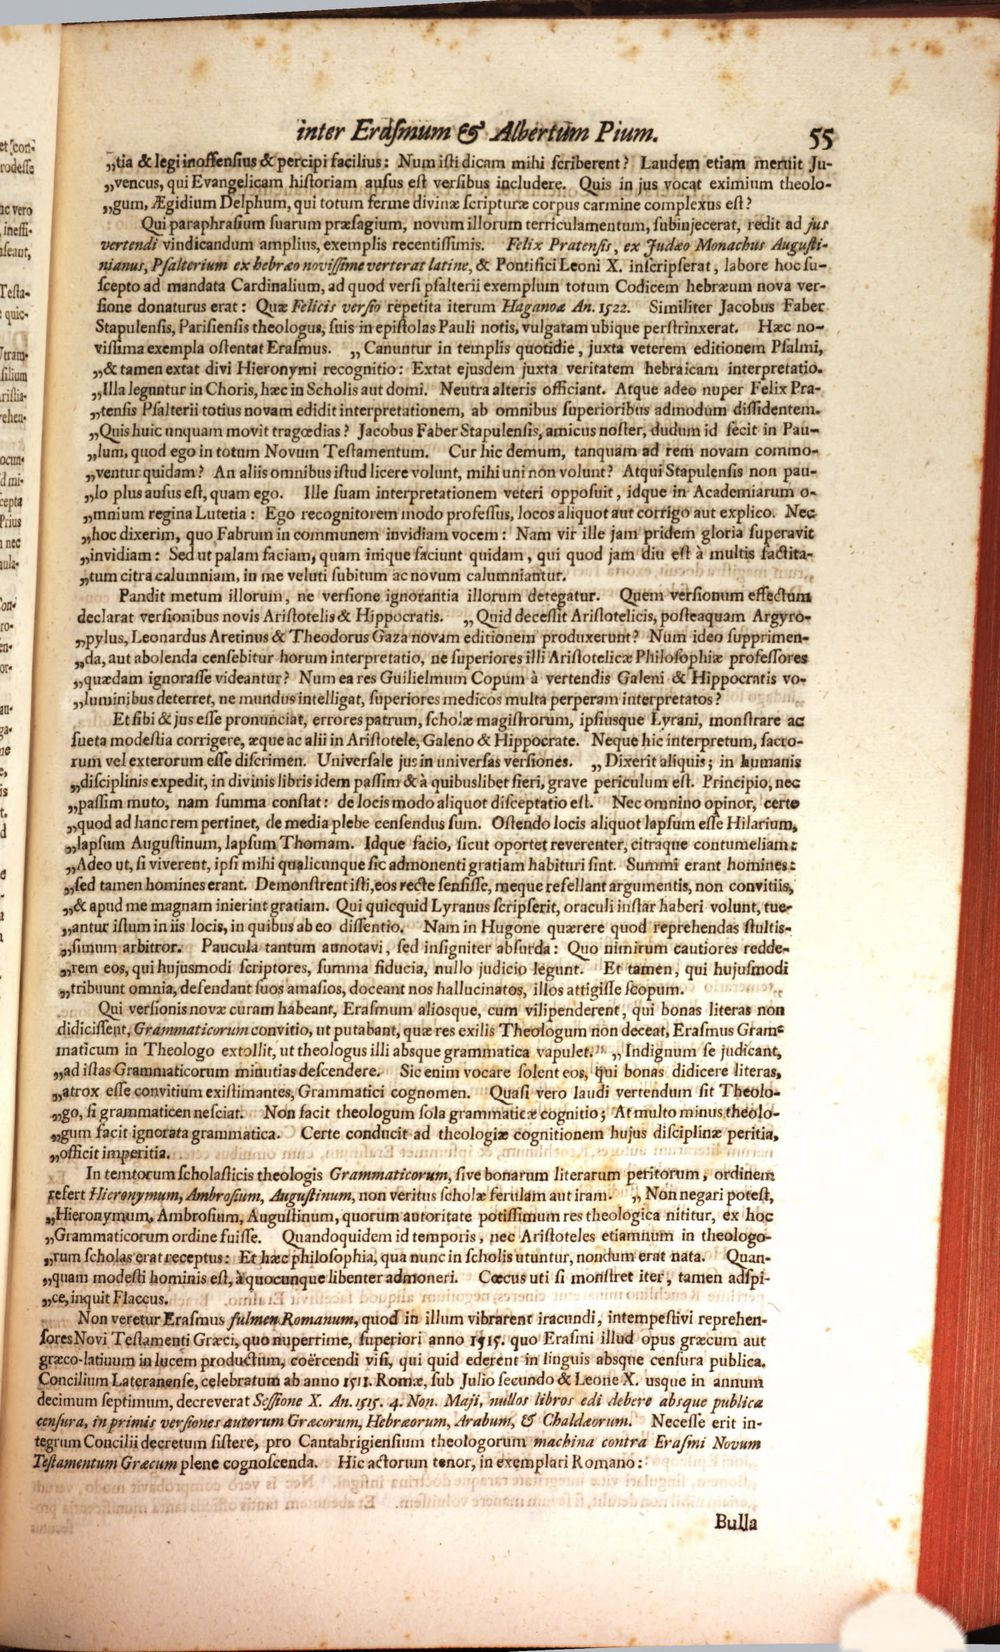 inter Erasmum & Albertum Pium. 55
„tia & legi inoffensius & percipi facilius: Num isti dicam mihi scriberent? Laudem etiam meruit Ju-
„vencus, qui Evangelicam historiam ausus est versibus includere. Quis in jus vocat eximium theolo-
„gum, Ægidium Delphum, qui totum ferme divinæ scripturæ corpus carmine complexus est?
Qui paraphrasium suarum præsagium, novum illorum terriculamentum, subinjecerat, redit ad jus
vertendi vindicandum amplius, exemplis recentissimis. Felix Pratensis, ex Judæo Monachus Augusti-
nianus, Psalterium ex hebræo novissime verterat latine, & Pontifici Leoni X. inscripserat, labore hoc su-
scepto ad mandata Cardinalium, ad quod versi psalterii exemplum totum Codicem hebræum nova ver-
sione donaturus erat: Quæ Felicis versio repetita iterum Haganoæ An. 1522. Similiter Jacobus Faber
Stapulensis, Parisiensis theologus, suis in epistolas Pauli notis, vulgatam ubique perstrinxerat. Hæc no-
vissima exempla ostentat Erasmus. „Canuntur in templis quotidie, juxta veterem editionem Psalmi,
„& tamen extat divi Hieronymi recognitio: Extat ejusdem juxta veritatem hebraicam interpretatio.
„Illa leguntur in Choris, hæc in Scholis aut domi. Neutra alteris officiant. Atque adeo nuper Felix Pra-
„tensis Psalterii totius novam edidit interpretationem, ab omnibus superioribus admodum dissidentem.
„Quis huic unquam movit tragœdias? Jacobus Faber Stapulensis, amicus noster, dudum id fecit in Pau-
„lum, quod ego in totum Novum Testamentum. Cur hic demum, tanquam ad rem novam commo-
„ventur quidam? An aliis omnibus istud licere volunt, mihi uni non volunt? Atqui Stapulensis non pau-
„lo plus ausus est, quam ego. Ille suam interpretationem veteri opposuit, idque in Academiarum o-
„mnium regina Lutetia: Ego recognitorem modo professus, locos aliquot aut corrigo aut explico. Nec
„hoc dixerim, quo Fabrum in communem invidiam vocem: Nam vir ille jam pridem gloria superavit
„invidiam: Sed ut palam faciam, quam inique faciunt quidam, qui quod jam diu est à multis factita-
„tum citra calumniam, in me veluti subitum ac novum calumniantur.
Pandit metum illorum, ne versione ignorantia illorum detegatur. Quem versionum effectum
declarat versionibus novis Aristotelis & Hippocratis. „Quid decessit Aristotelicis, posteaquam Argyro-
„pylus, Leonardus Aretinus & Theodorus Gaza novam editionem produxerunt? Num ideo supprimen-
„da, aut abolenda censebitur horum interpretatio, ne superiores illi Aristotelicæ Philosophiæ professores
„quædam ignorasse videantur? Num ea res Guilielmum Copum à vertendis Galeni & Hippocratis vo-
„luminibus deterret, ne mundus intelligat, superiores medicos multa perperam interpretatos?
Et sibi & jus esse pronunciat, errores patrum, scholæ magistrorum, ipsiusque Lyrani, monstrare ac
sueta modestia corrigere, æque ac alii in Aristotele, Galeno & Hippocrate. Neque hic interpretum, sacro-
rum vel exterorum esse discrimen. Universale jus in universas versiones. „Dixerit aliquis; in humanis
„disciplinis expedit, in divinis libris idem passim & à quibuslibet fieri, grave periculum est. Principio, nec
„passim muto, nam summa constat: de locis modo aliquot disceptatio est. Nec omnino opinor, certe
„quod ad hanc rem pertinet, de media plebe censendus sum. Ostendo locis aliquot lapsum esse Hilarium,
„lapsum Augustinum, lapsum Thomam. Idque facio, sicut oportet reverenter, citraque contumeliam:
„Adeo ut, si viverent, ipsi mihi qualicunque sic admonenti gratiam habituri sint. Summi erant homines:
„sed tamen homines erant. Demonstrent isti, eos recte sensisse, meque refellant argumentis, non convitiis,
„& apud me magnam inierint gratiam. Qui quicquid Lyranus scripserit, oraculi instar haberi volunt, tue-
„antur istum in iis locis, in quibus ab eo dissentio. Nam in Hugone quærere quod reprehendas stultis-
„simum arbitror. Paucula tantum annotavi, sed insigniter absurda: Quo nimirum cautiores redde-
„rem eos, qui hujusmodi scriptores, summa fiducia, nullo judicio legunt. Et tamen, qui hujusmodi
„tribuunt omnia, defendant suos amasios, doceant nos hallucinatos, illos attigisse scopum.
Qui versionis novæ curam habeant, Erasmum aliosque, cum vilipenderent, qui bonas literas non
didicissent, Grammaticorum convitio, ut putabant, quæ res exilis Theologum non deceat, Erasmus Gram-
maticum in Theologo extollit, ut theologus illi absque grammatica vapulet. „Indignum se judicant,
„ad istas Grammaticorum minutias descendere. Sic enim vocare solent eos, qui bonas didicere literas,
„atrox esse convitium existimantes, Grammatici cognomen. Quasi vero laudi vertendum sit Theolo-
„go, si grammaticen nesciat. Non facit theologum sola grammaticæ cognitio; At multo minus theolo-
„gum facit ignorata grammatica. Certe conducit ad theologiæ cognitionem hujus disciplinæ peritia,
„officit imperitia.
In temtorum scholasticis theologis Grammaticorum, sive bonarum literarum peritorum, ordinem
refert Hieronymum, Ambrosium, Augustinum, non veritus scholæ ferulam aut iram. „Non negari potest,
„Hieronymum, Ambrosium, Augustinum, quorum autoritate potissimum res theologica nititur, ex hoc
„Grammaticorum ordine fuisse. Quandoquidem id temporis, nec Aristoteles etiamnum in theologo-
„rum scholas erat receptus: Et hæc philosophia, qua nunc in scholis utuntur, nondum erat nata. Quan-
„quam modesti hominis est, à quocunque libenter admoneri. Cœcus uti si monstret iter, tamen adspi-
„ce, inquit Flaccus.
Non veretur Erasmus fulmen Romanum, quod in illum vibrarent iracundi, intempestivi reprehen-
sores Novi Testamenti Græci, quo nuperrime, superiori anno 1515. quo Erasmi illud opus græcum aut
græco-latinum in lucem productum, coërcendi visi, qui quid ederent in linguis absque censura publica.
Concilium Lateranense, celebratum ab anno 1511. Romæ, sub Julio secundo & Leone X. usque in annum
decimum septimum, decreverat Sessione X. An. 1515. 4. Non. Maji, nullos libros edi debere absque publica
censura, in primis versiones autorum Græcorum, Hebræorum, Arabum, & Chaldæorum. Necesse erit in-
tegrum Concilii decretum sistere, pro Cantabrigiensium theologorum machina contra Erasmi Novum
Testamentum Græcum plene cognoscenda. Hic actorum tenor, in exemplari Romano:
Bulla